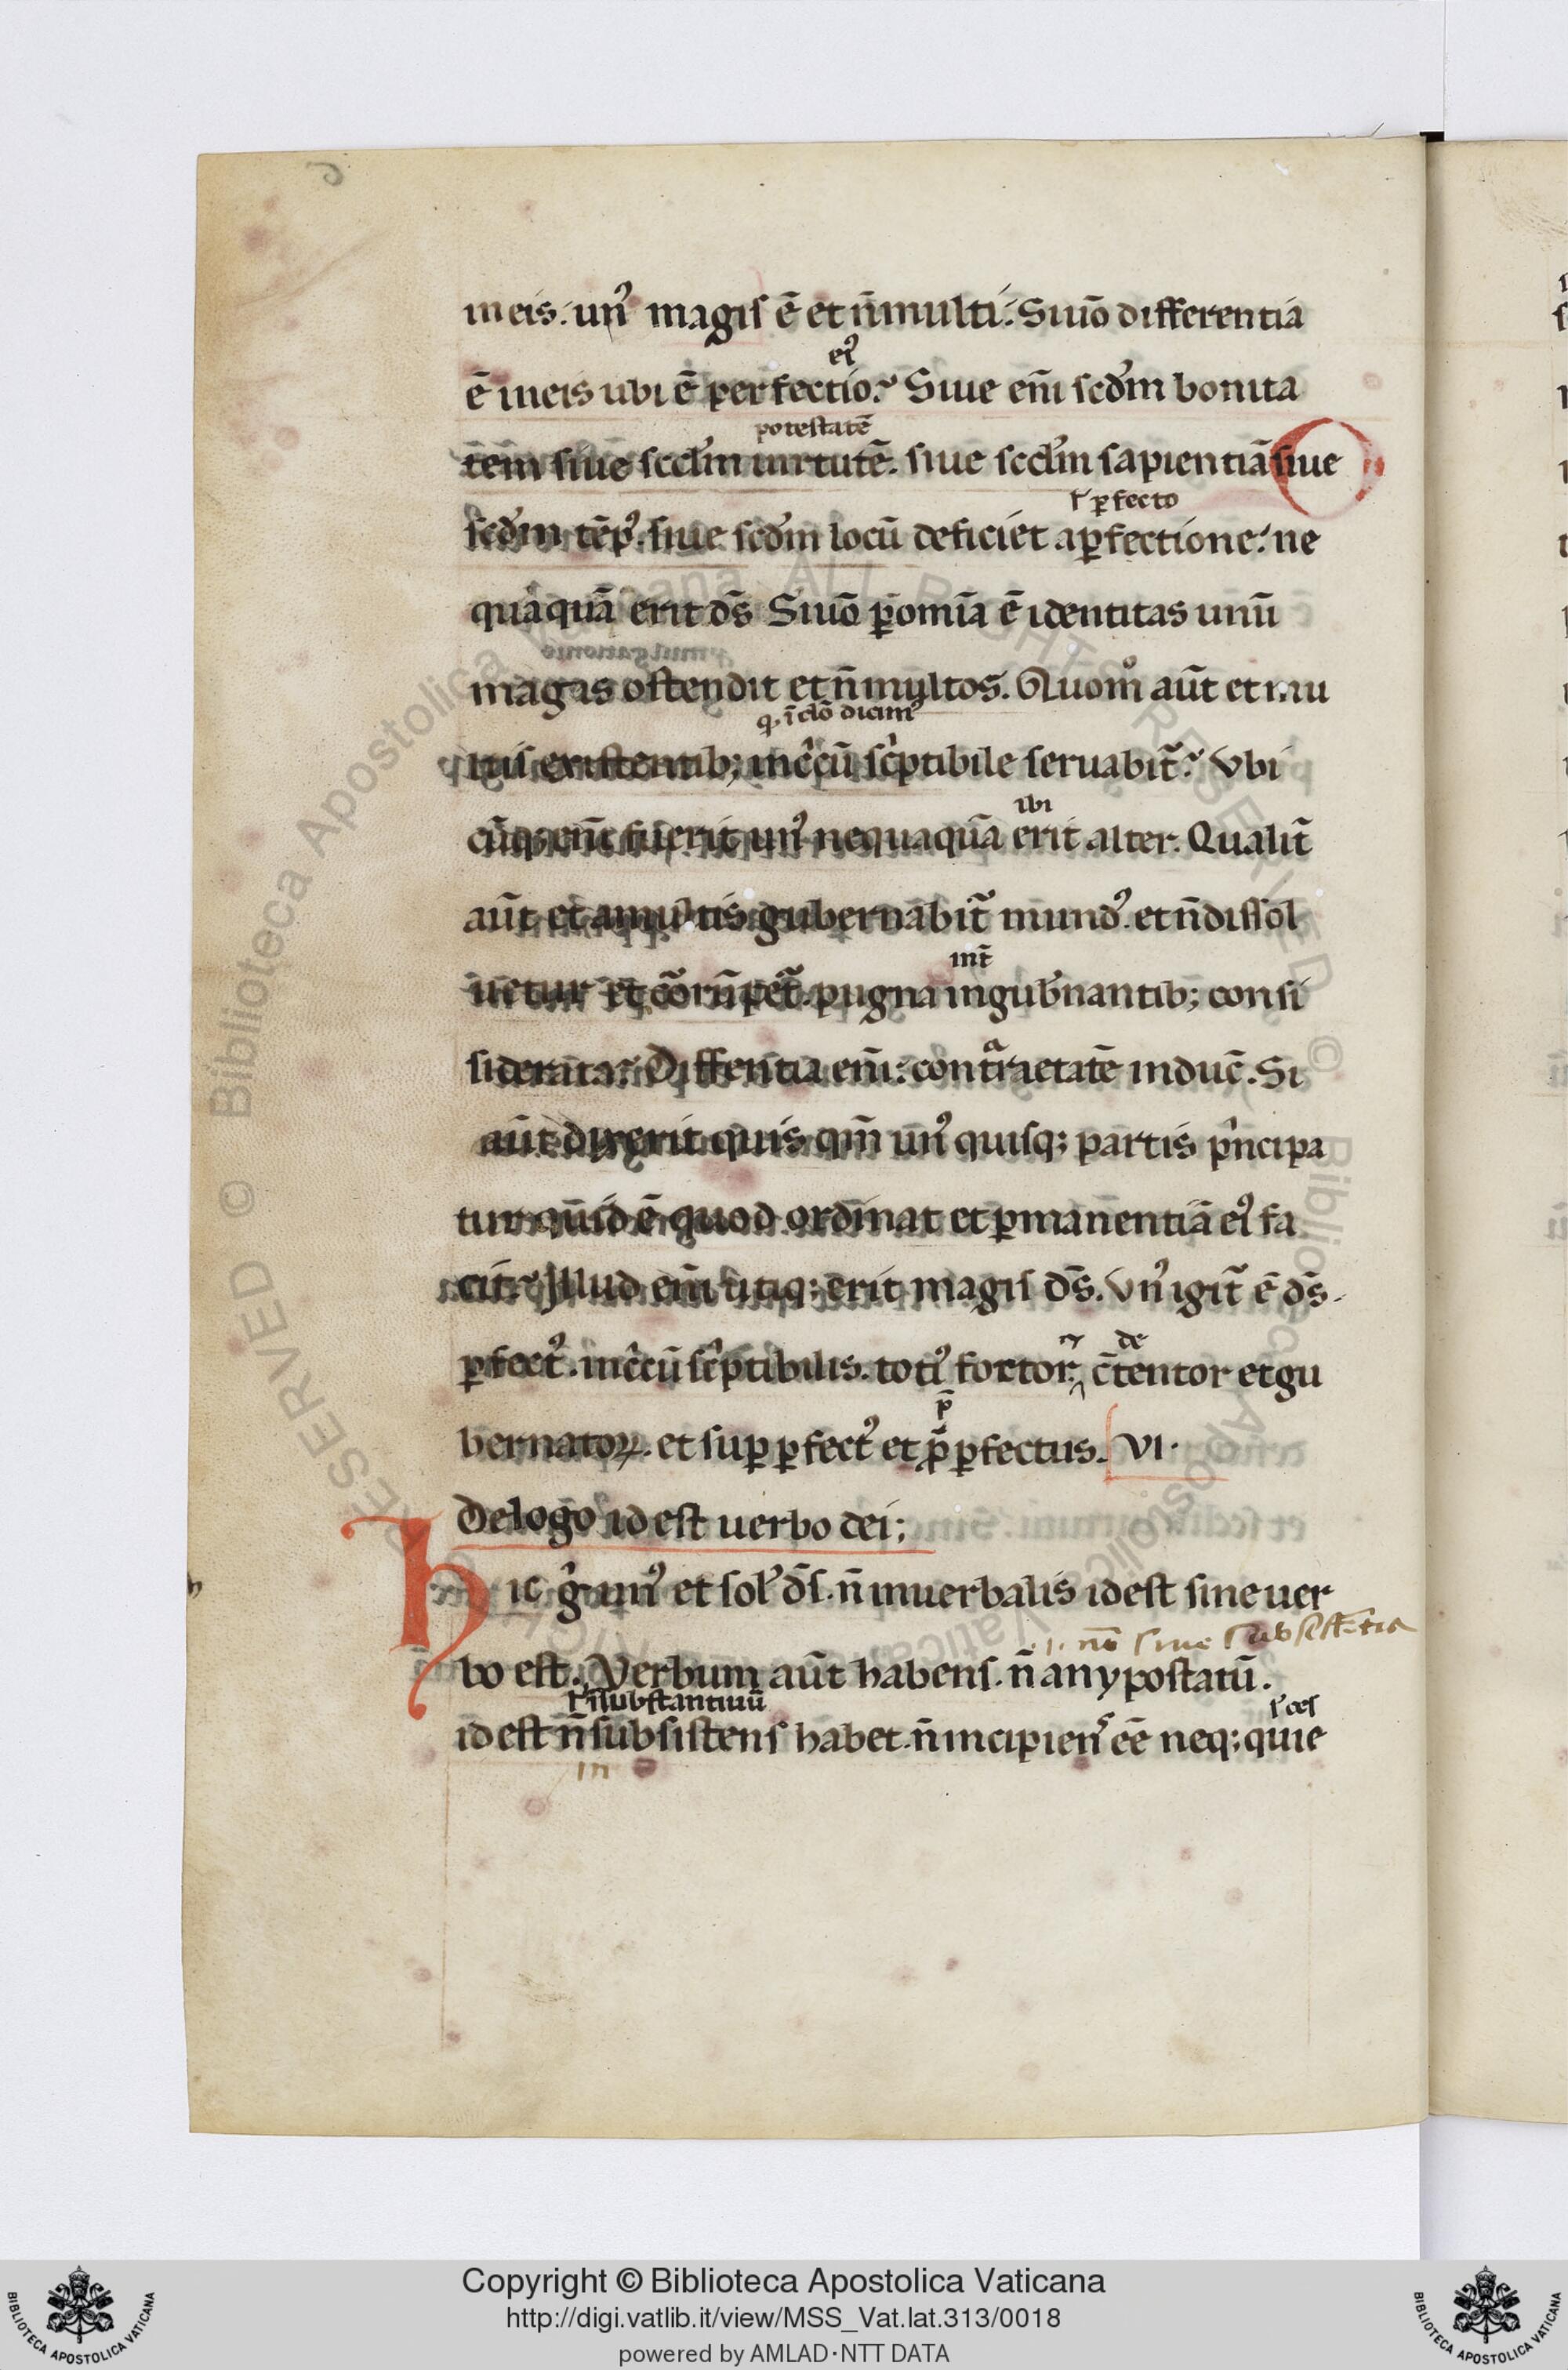 in eis. un᾽ magis ē et n̄ multi. Si uō differentia
ei᾽
ē in eis ubi ē perfectio? Siue eni̅ scd̅m bonita
potestatē
tem siue scd̅m uirtutē. siue scd̅m sapientiā siue
ꝑfecto
scd̅m tēp᾽. siue scd̅m locū deficiet a ꝑfectione. ne
quaquā erit d̅s Si uō ꝑ omīa ē identitas unū
magis ostendit et n̄ multos. Quom° aūt et mu
q. i̅ clō dicim᾽
ltis existentib; incͥcūscͥptibile seruabit̄? Vbi
ibi
cūq; eni̅ fuerit un᾽ nequaquā erit alter. Qualit̄
aūt et a multis gubernabit̄ mund᾽. et n̄ dissol
int̄
uetur et cōrūpet̄. pugna in gub̄nantib; consi
siderata? Diffentia eni̅. contrͣrietatē induc̄. Si
aūt dixerit quis qm̄ un᾽ quisq; partis pͥncipa
tur quid ē quod ordinat et ꝑmanentiā ei᾽ fa
cit? Illud eni̅ utiq; erit magis d̅s. Vn᾽ igit̄ ē d̅s.
⁊ de
ꝑfect᾽. incͥcūscͥptibilis. toti᾽ factor, c̄tentor et gu
p̄
bernator. et suꝑ ꝑfect᾽ et p̄ ꝑfectus. VI.
De logo id est uerbo dei;
Hic gͥ un᾽ et sol᾽ d̅s. n̄ inuerbalis id est sine uer
.i. nō sine subsistētia
bo est. Verbum aūt habens. n̄ anypostatū.
īsubstantiuū
ces
id est n̄ subsistens habet. n̄ incipiens ēē neq; quie
in
Copyright © Biblioteca Apostolica Vaticana
http://digi.vatlib.it/view/MSS_Vat.lat.313/0018
powered by AMLAD·NTT DATA
BIBLIOTECA APOSTOLICA VATICANA
BIBLIOTECA APOSTOLICA VATICANA